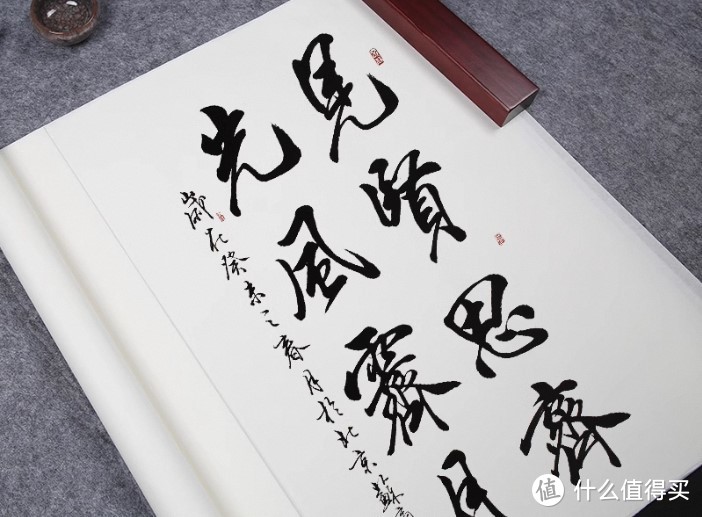 見賢思齊
光風霽月
歲在癸未之春月於北京蘇
值 什么值得买